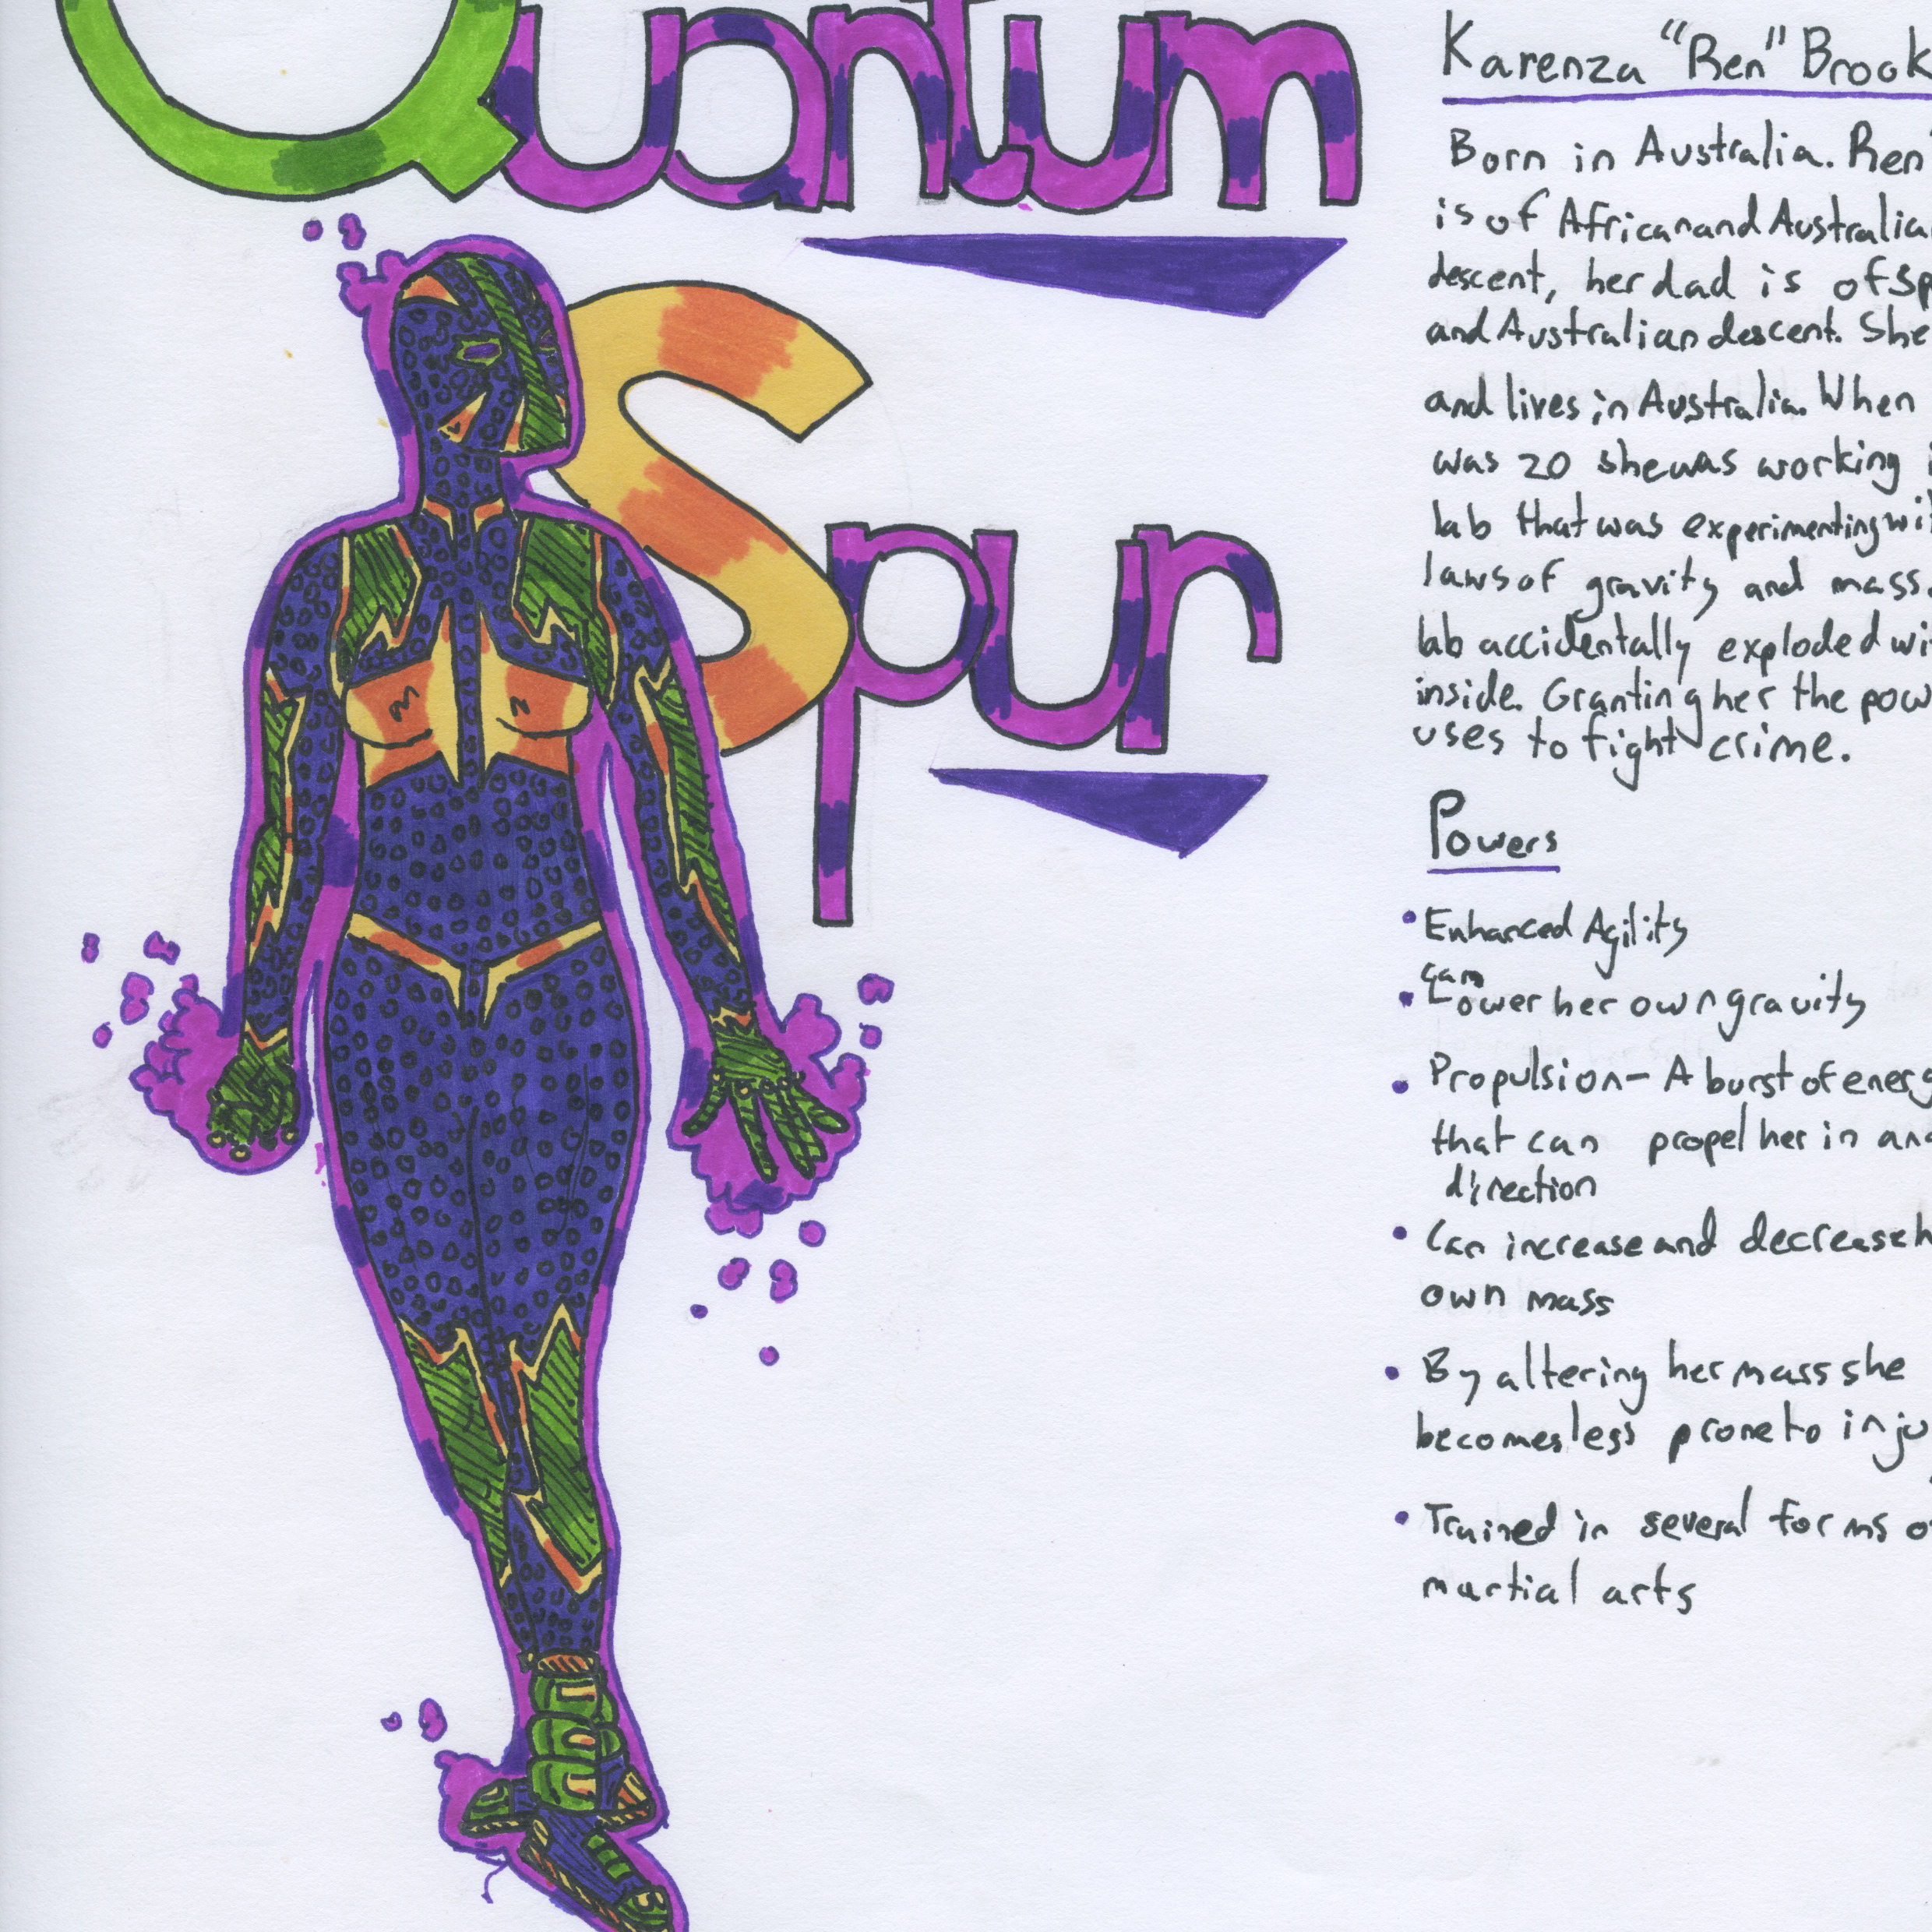 Quantum
Spur
Karenza "Ren" Brook
Born in Australia. Ren
is of African and Australia
descent, her dad is of sp
and Australian descent. She
and lives in Australia. When
was 20 she was working i
lab that was experimenting wi
laws of gravity and mass.
lab accidentally exploded wi
inside. Granting her the pow
uses to fight crime.
Powers
• Enhanced Agility
can
• Lower her own gravity
• Propulsion - A burst of energ
that can propel her in an
direction
• Can increase and decrease h
own mass
• By altering her mass she
becomes less prone to inju
• Trained in several forms o
martial arts